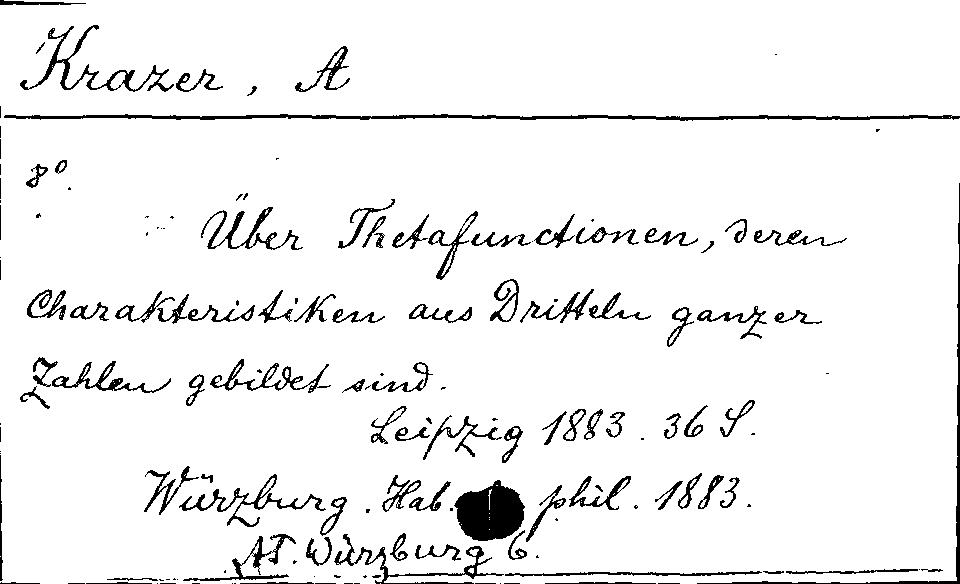 Krazer, A
8°.
Über Thetafunctionen, deren
Charakteristiken aus Dritteln ganzer
Zahlen gebildet sind.
Leipzig 1883. 36 S.
Würzburg. Hab. phil. 1883.
AT. Würzburg 6.